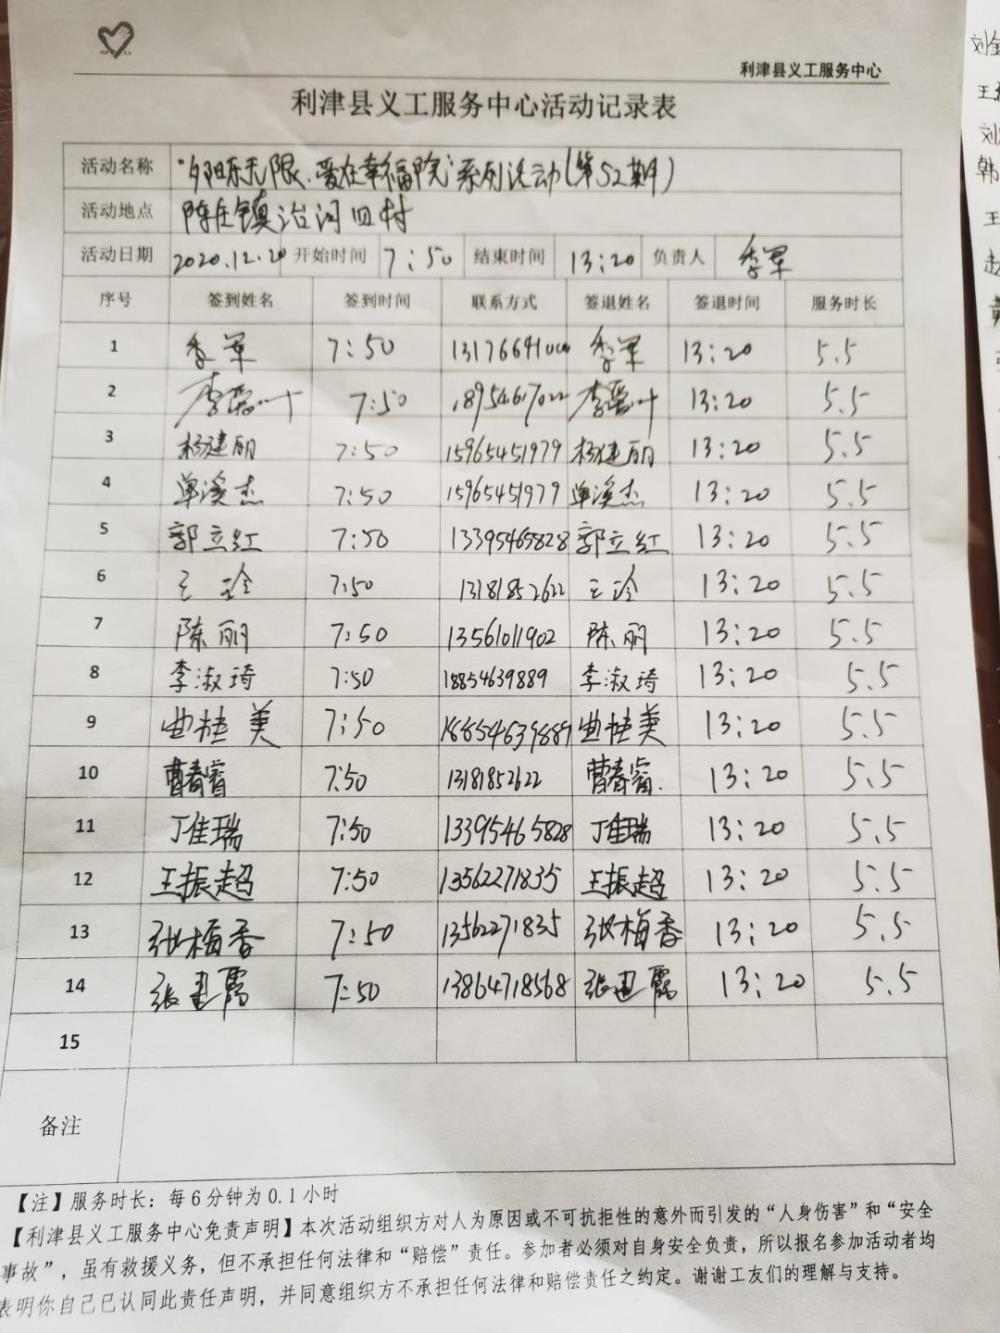 利津县义工服务中心
利津县义工服务中心活动记录表
活动名称 "夕阳乐无限.爱在幸福院"系列活动(第52期)
活动地点 陈庄镇治河四村
活动日期 2020.12.20 开始时间 7:50 结束时间 13:20 负责人 季军
序号 签到姓名 签到时间 联系方式 签退姓名 签退时间 服务时长
1 季军 7:50 季军 13:20 5.5
2 7:50 13:20 5.5
3 杨建丽 7:50 15965451979 杨建丽 13:20 5.5
4 单溪杰 7:50 15965451979 单溪杰 13:20 5.5
5 郭立红 7:50 13395465828 郭立红 13:20 5.5
6 王玲 7:50 13181852622 王玲 13:20 5.5
7 陈丽 7:50 13561011902 陈丽 13:20 5.5
8 李淑琦 7:50 18854639889 李淑琦 13:20 5.5
9 曲桂美 7:50 曲桂美 13:20 5.5
10 曹春睿 7:50 13181852622 曹春睿. 13:20 5.5
11 丁佳瑞 7:50 13395465828 丁佳瑞 13:20 5.5
12 王振超 7:50 13562271835 王振超 13:20 5.5
13 张梅香 7:50 13562271835 张梅香 13:20 5.5
14 张建霞 7:50 13864718568 张建霞 13:20 5.5
15
备注
【注】服务时长：每6分钟为0.1小时
【利津县义工服务中心免责声明】本次活动组织方对人为原因或不可抗拒性的意外而引发的“人身伤害”和“安全
事故”，虽有救援义务，但不承担任何法律和“赔偿”责任。参加者必须对自身安全负责，所以报名参加活动者均
表明你自己已认同此责任声明，并同意组织方不承担任何法律和赔偿责任之约定。谢谢工友们的理解与支持。